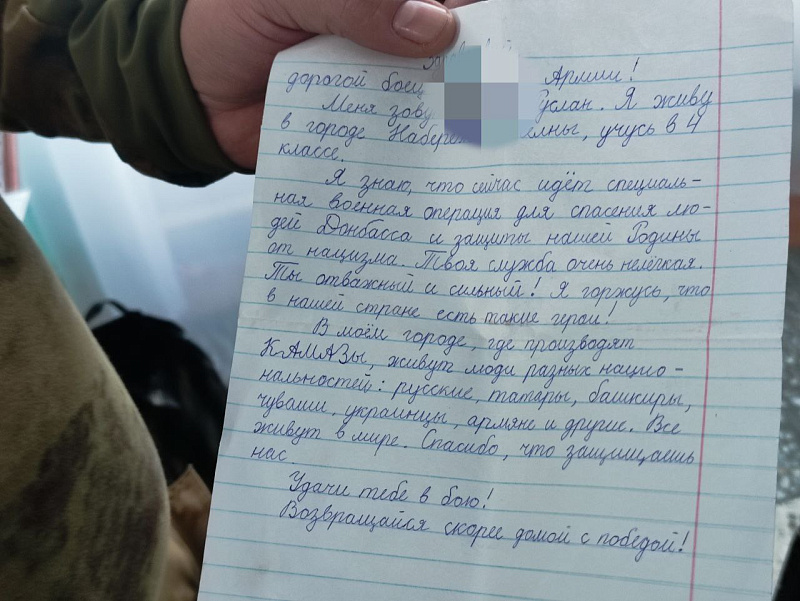 Армии!
дорогой боец
Меня зову услан. Я живу
в городе Набере лны, учусь в 4
классе.
Я знаю, что сейчас идёт специаль-
ная военная операция для спасения лю-
дей Донбасса и защиты нашей Родины
от нацизма. Твоя служба очень нелёгкая.
Ты отважный и сильный! Я горжусь, что
в нашей стране есть такие герои!
В моём городе, где производят
КАМАЗы, живут люди разных нацио-
нальностей: русские, татары, башкиры,
чуваши, украинцы, армяне и другие. Все
живут в мире. Спасибо, что защищаешь
нас.
Удачи тебе в бою!
Возвращайся скорее домой с победой!